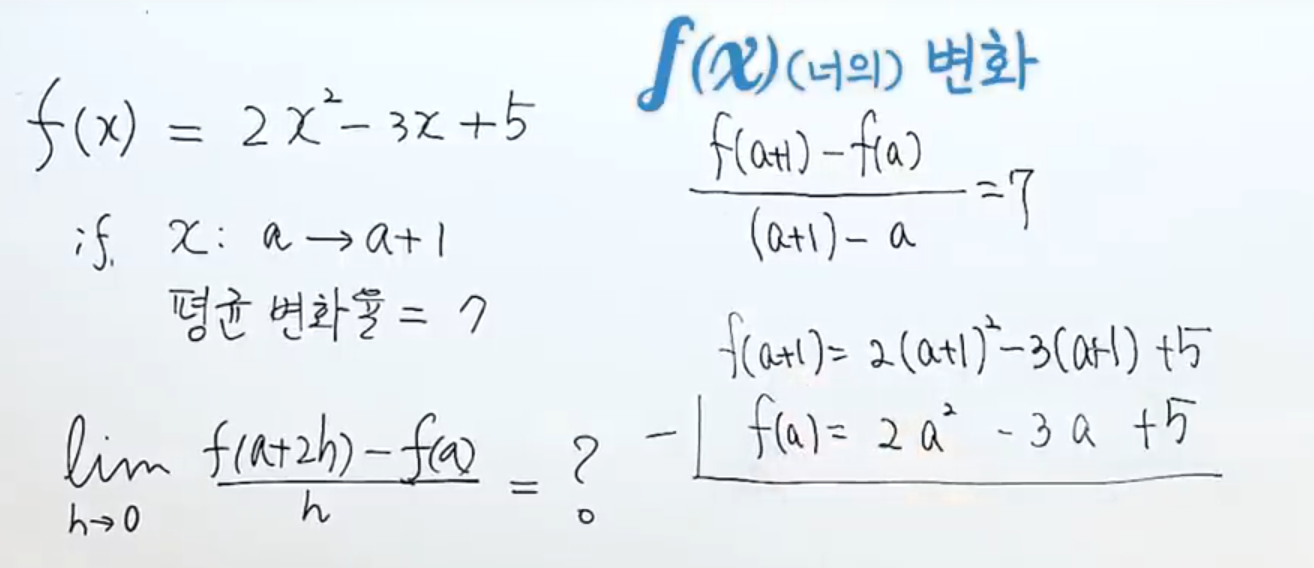 f(x) = 2x² - 3x + 5
if. x: a → a+1
평균 변화율 = 7
lim h→0 f(a+2h) - f(a) / h = ?
f(x)(너의) 변화
f(a+1) - f(a) / (a+1) - a = 7
f(a+1) = 2(a+1)² - 3(a+1) + 5
-| f(a) = 2a² - 3a + 5